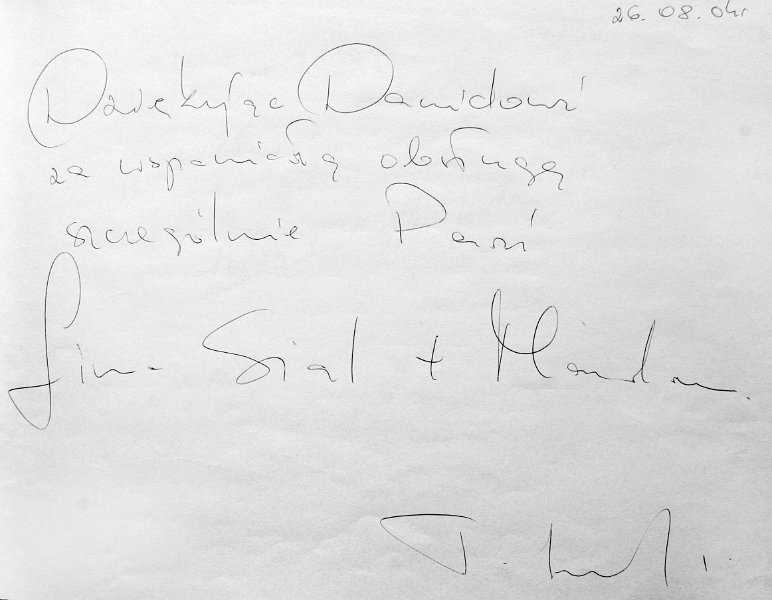 26.08.04r
Dziękując Dawidowi
za wspaniałą obsługę
szczególnie Pani
Sial +
T.